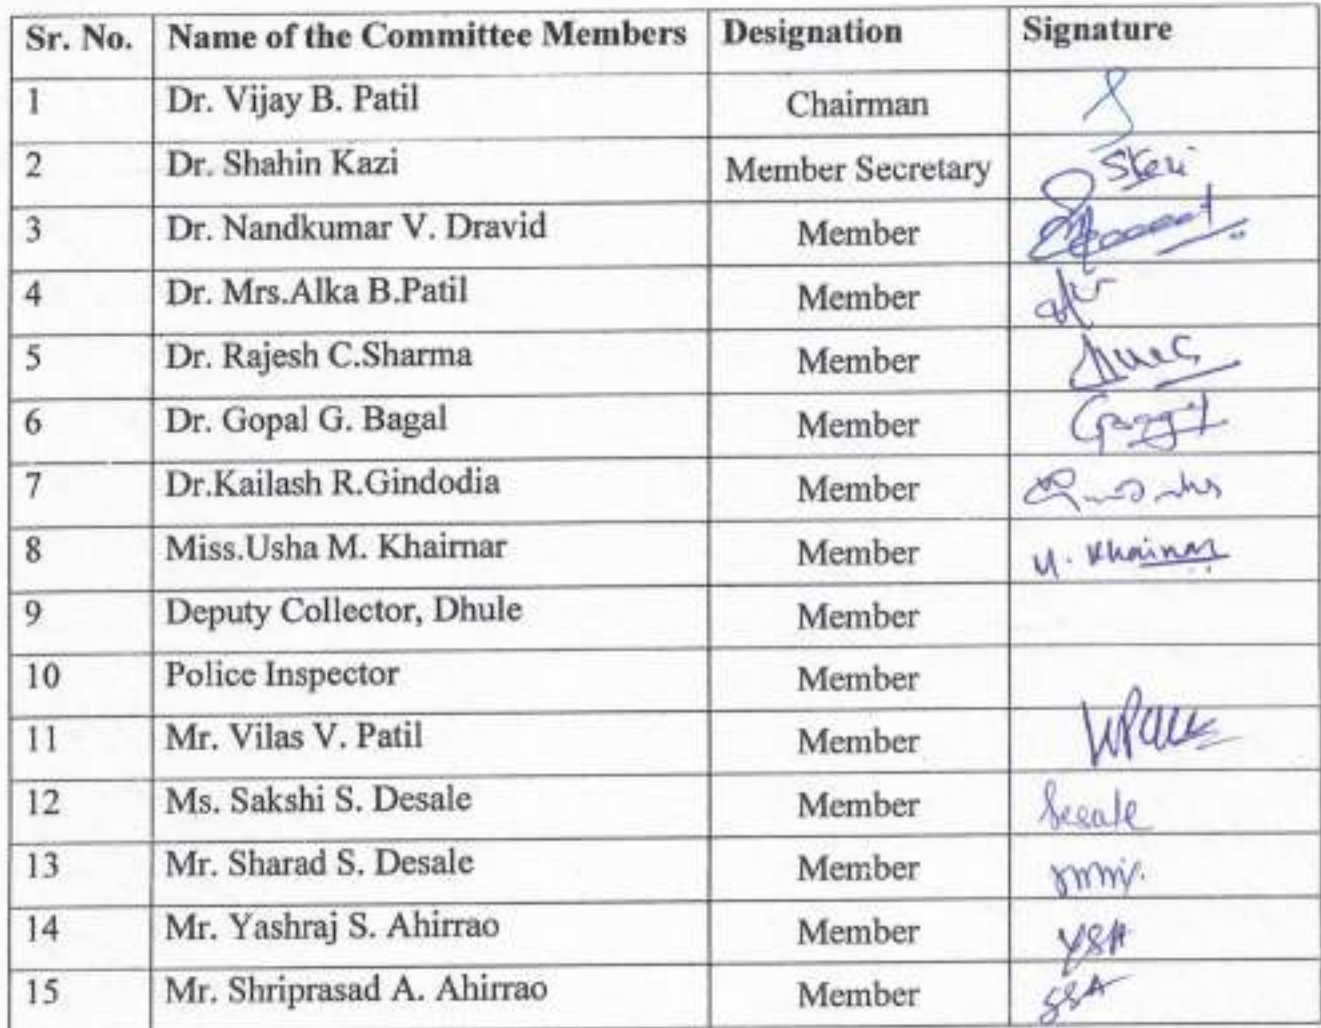 Sr. No. Name of the Committee Members Designation Signature
1 Dr. Vijay B. Patil Chairman
2 Dr. Shahin Kazi Member Secretary
3 Dr. Nandkumar V. Dravid Member
4 Dr. Mrs.Alka B.Patil Member
5 Dr. Rajesh C.Sharma Member
6 Dr. Gopal G. Bagal Member
7 Dr.Kailash R.Gindodia Member
8 Miss.Usha M. Khairnar Member U. Khairnar
9 Deputy Collector, Dhule Member
10 Police Inspector Member
11 Mr. Vilas V. Patil Member
12 Ms. Sakshi S. Desale Member
13 Mr. Sharad S. Desale Member
14 Mr. Yashraj S. Ahirrao Member YSA
15 Mr. Shriprasad A. Ahirrao Member SSA